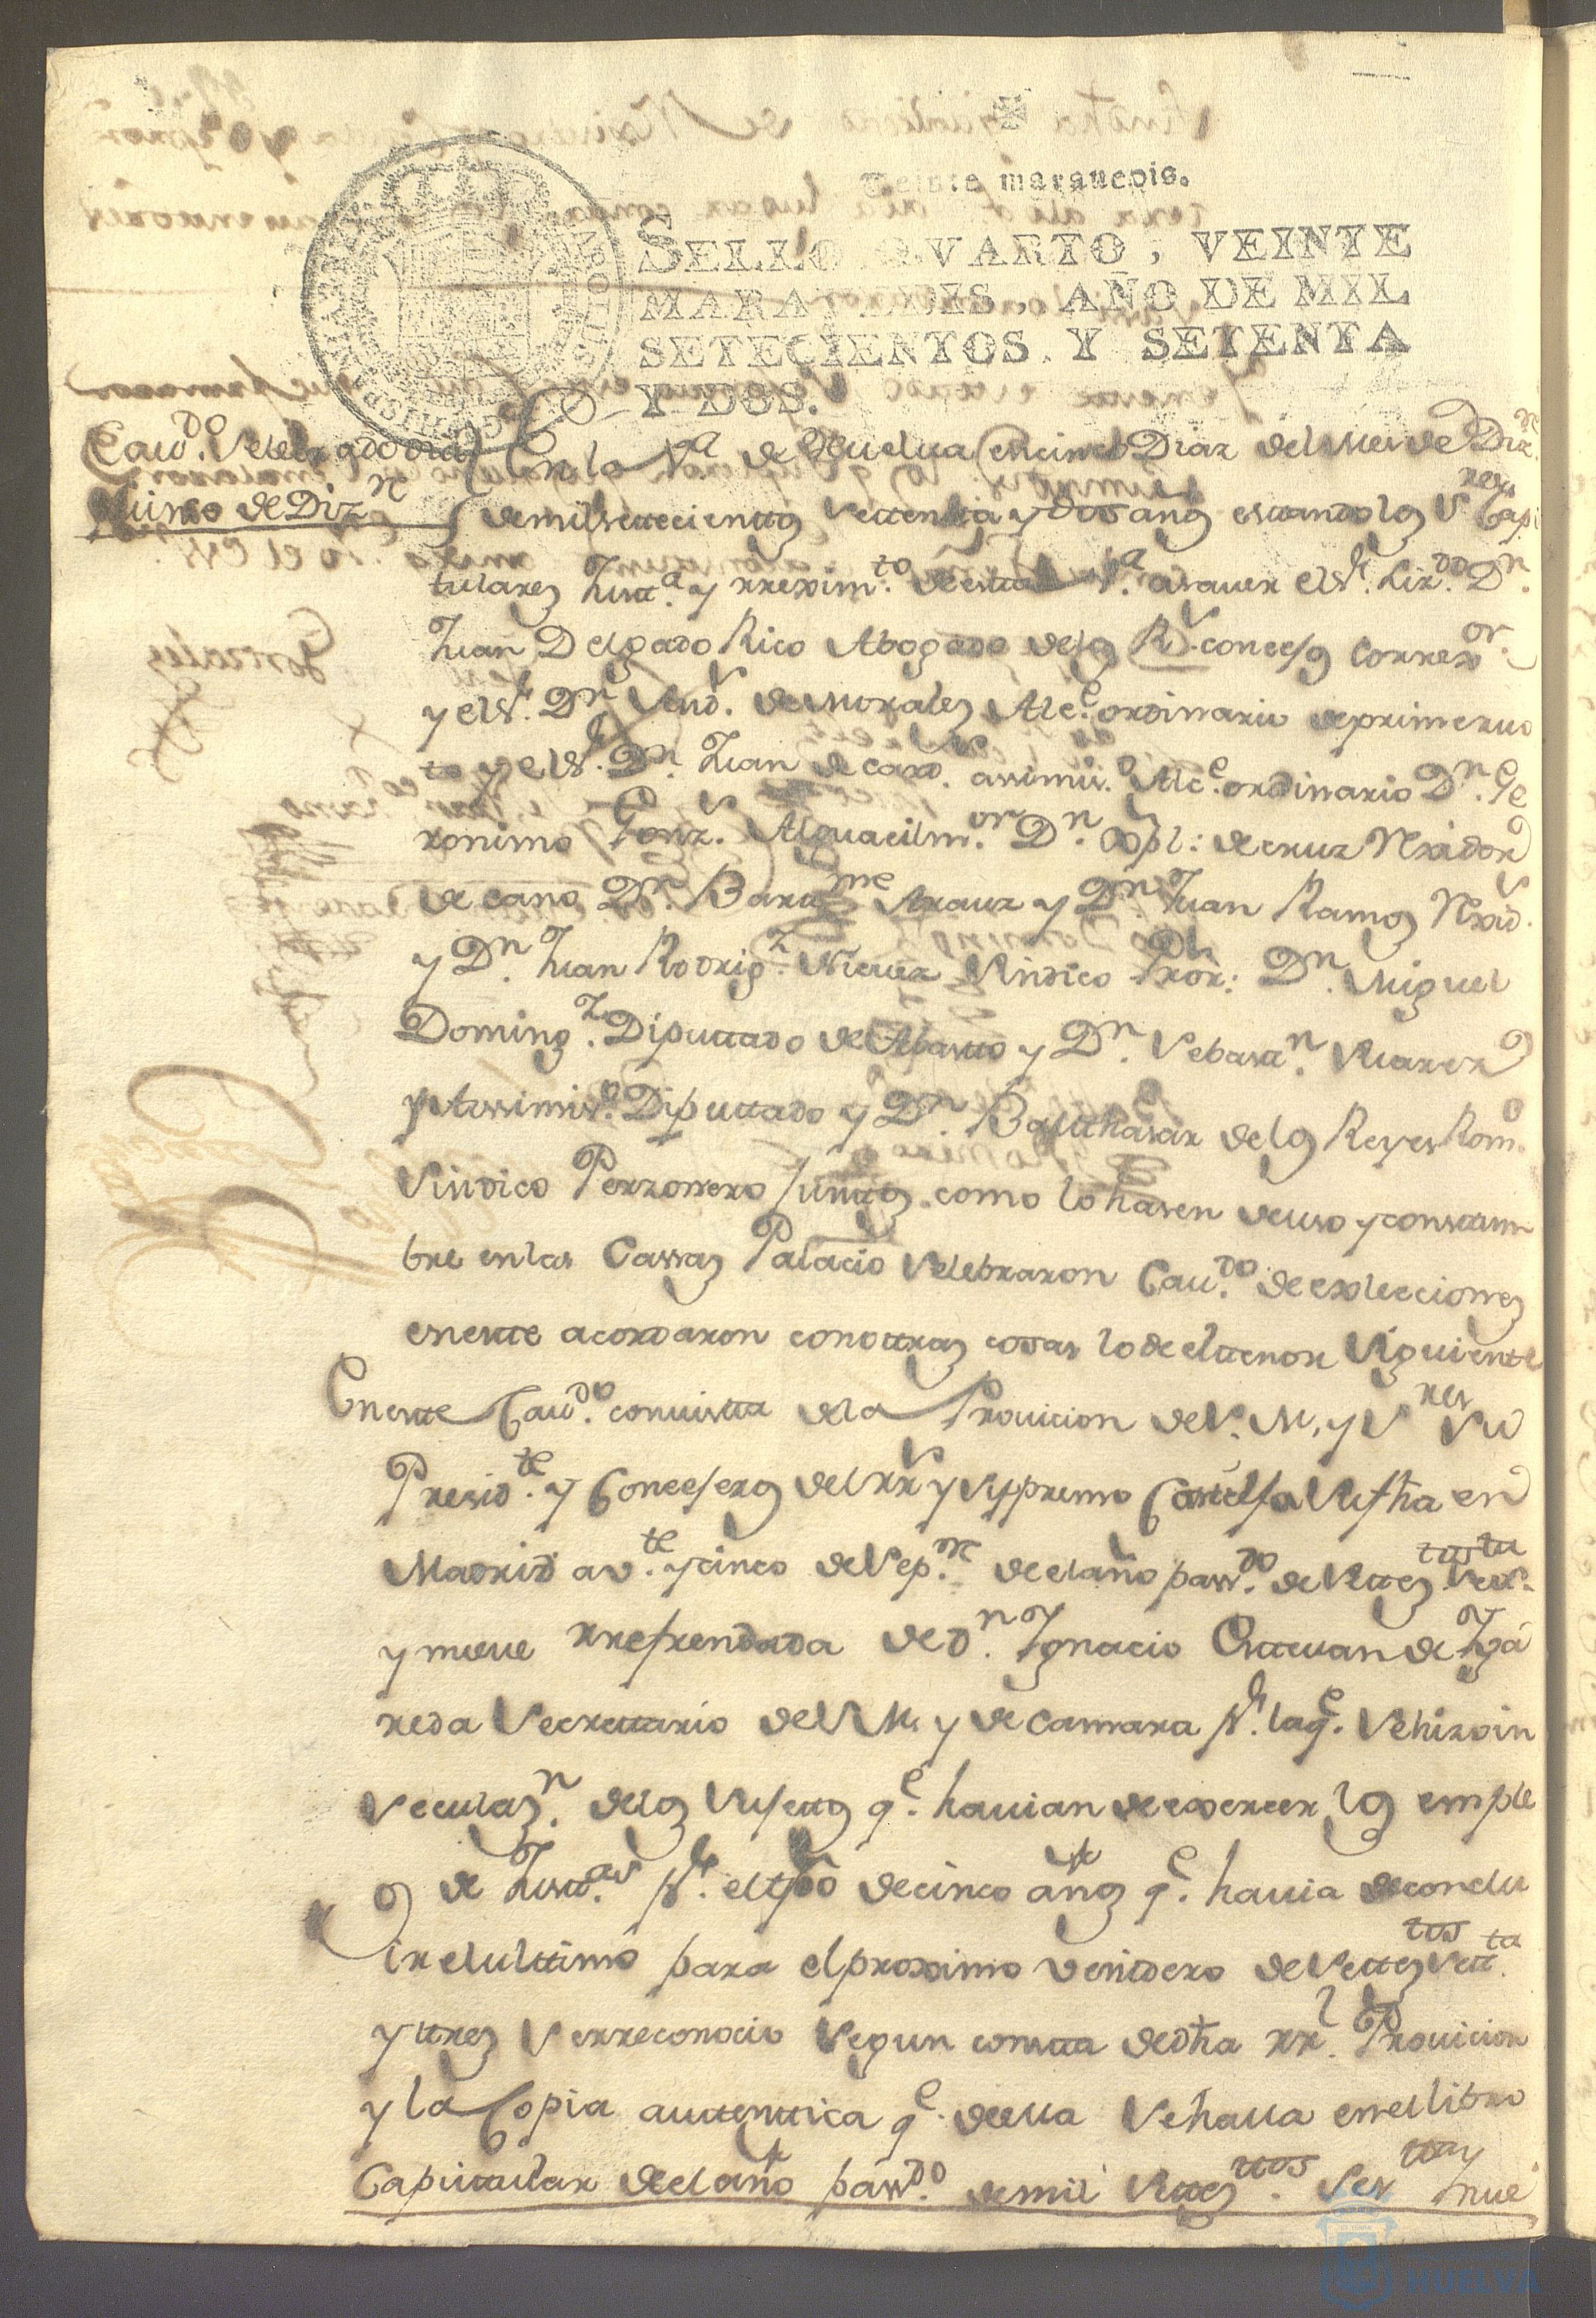 Veinte marauedis.
SELLO QVARTO, VEINTE
MARAVEDIS, AÑO DE MIL
SETECIENTOS Y SETENTA
Y DOS.
Caudo. Selebrado dia
Sinco de Dizre
En la Va de Huelua en cinco Dias del mes de Dizre
de mil settecienttos settentta y dos años esttando los Sres Capi
tulares Justta. y rreximto. de estta Va. a sauer el Sr. Lizdo. Dn.
Juan Delgado Rico Abogado de los Rs. consejos Correxor.
y el Sr. Dn Ands. de Morales Alce. ordinario de primer uo
to y el Sr. Dn. Juan de Card. assimismo Alce. ordinario Dn. Ge
ronimo Gonz. Alguacil mor Dn. Xptl: de cruz Rexidor
decano Dn. Bartme Arauz y Dn. Juan Ramos Rexid.
y Dn. Juan Rodrigz. Nieuez Sindico Pror: Dn. Miguel
Domingz. Diputtado de Abastto y Dn. Sebastn. Suarez
y Assimismo. Diputtado y Dn. Balthasar de los Reyes Romo.
Sindico Perzonero Junttos como lo hasen de uso y consttum
bre en las Cassas Palacio Selebraron Caudo. de exlecciones
en estte acordaron con ottras cosas lo de el tenor Siguiente
En estte Caudo. con uistta de la Prouicion de S. M. y Sres Su
Preside. y Consejeros del Rl. y Supremo Consejo Su fha en
Madrid a vte. y cinco de Sepre. de el año passdo. de settestos sesta.
y nueue rrefrendada de Dn. Ygnacio Esteuan de Yga
reda Secrettario de S M. y de Camara pr. la qe. Se hizo in
seculazn. de los Sujettos qe. hauian de exercer los emple
os de Justtas. pr. el tpo de cinco años qe. hauia de conclu
ir el ulttimo para el proximo venidero de Settestos Settta
y ttres Se rreconocio Segun constta de dha rrl. Prouicion
y la Copia auttenttica qe. de ella Se halla en el libro
Capittular de el año passdo. de mil Settestos. Sesta y nue